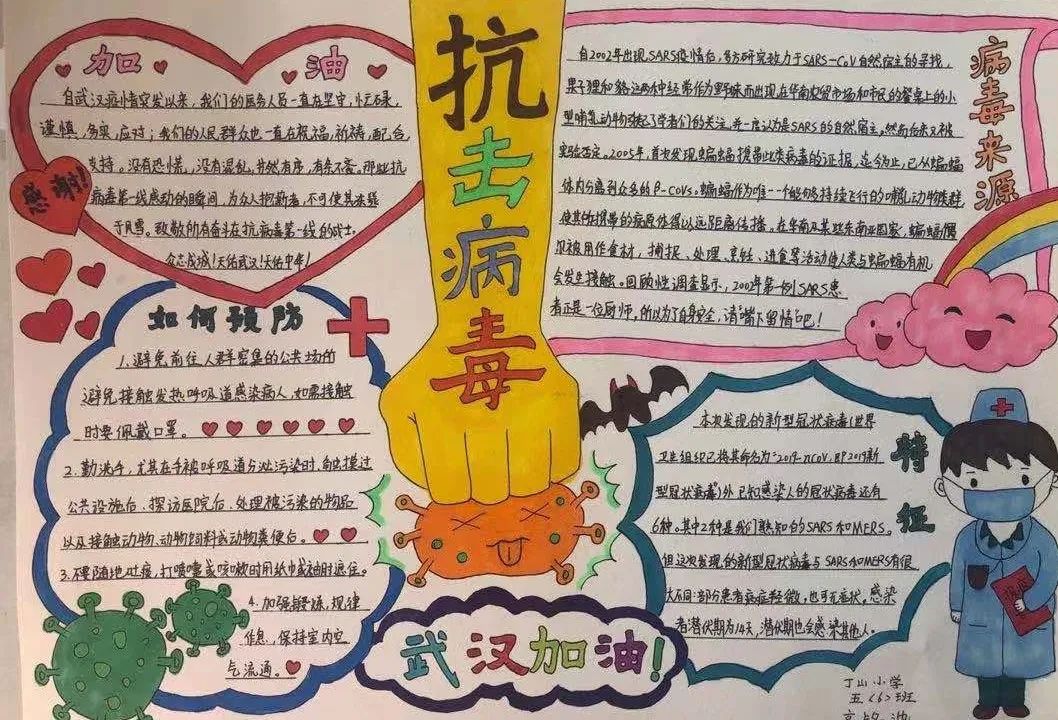 加油
自武汉疫情突发以来，我们的医务人员一直在坚守，忙碌，
谨慎，务实，应对；我们的人民群众也一直在祝福，祈祷，配合，
支持。没有恐慌，没有混乱，井然有序，有条不紊。那些抗
病毒第一线感动的瞬间，为众人抱薪者，不可使其冻毙
于风雪。致敬所有奋斗在抗病毒第一线的战士。
众志成城！天佑武汉！天佑中华！
感谢！
如何预防
1.避免前往人群密集的公共场所
避免接触发热呼吸道感染病人，如需接触
时要佩戴口罩。
2.勤洗手，尤其在手被呼吸道分泌污染时、触摸过
公共设施后、探访医院后、处理被污染的物品
以及接触动物、动物饲料或动物粪便后。
3.不要随地吐痰，打喷嚏或咳嗽时用纸巾或袖肘遮住。
4.加强锻炼，规律
作息，保持室内空
气流通。
抗击病毒
武汉加油！
病毒来源
自2002年出现SARS疫情后，多方研究致力于SARS-CoV自然宿主的寻找，
果子狸和貉这两种经常作为野味而出现在华南农贸市场和市民的餐桌上的小
型哺乳动物引起了学者们的关注，并一度认为是SARS的自然宿主。然而后来又被
实验否定。2005年，首次发现蝙蝠携带此类病毒的证据，迄今为止，已从蝙蝠
体内分离到众多的β-CoVs。蝙蝠作为唯一一个能够持续飞行的哺乳动物族群
使其携带的病原体得以远距离传播。在华南及某些东南亚国家，蝙蝠偶
尔被用作食材，捕捉、处理、烹饪、进食等活动使人类与蝙蝠有机
会发生接触。回顾性调查显示，2002年第一例SARS患
者正是一位厨师，所以为了自身安全，请“嘴下留情”吧！
特征
本次发现的新型冠状病毒（世界
卫生组织已将其命名为“2019-nCoV，即2019新
型冠状病毒”）外，已知感染人的冠状病毒还有
6种。其中2种是我们熟知的SARS和MERS。
但这次发现的新型冠状病毒与SARS和MERS有很
大不同：部分患者症症轻微，也可无症状。感染
者潜伏期为14天，潜伏期也会感染其他人。
丁山小学
五〈6〉班